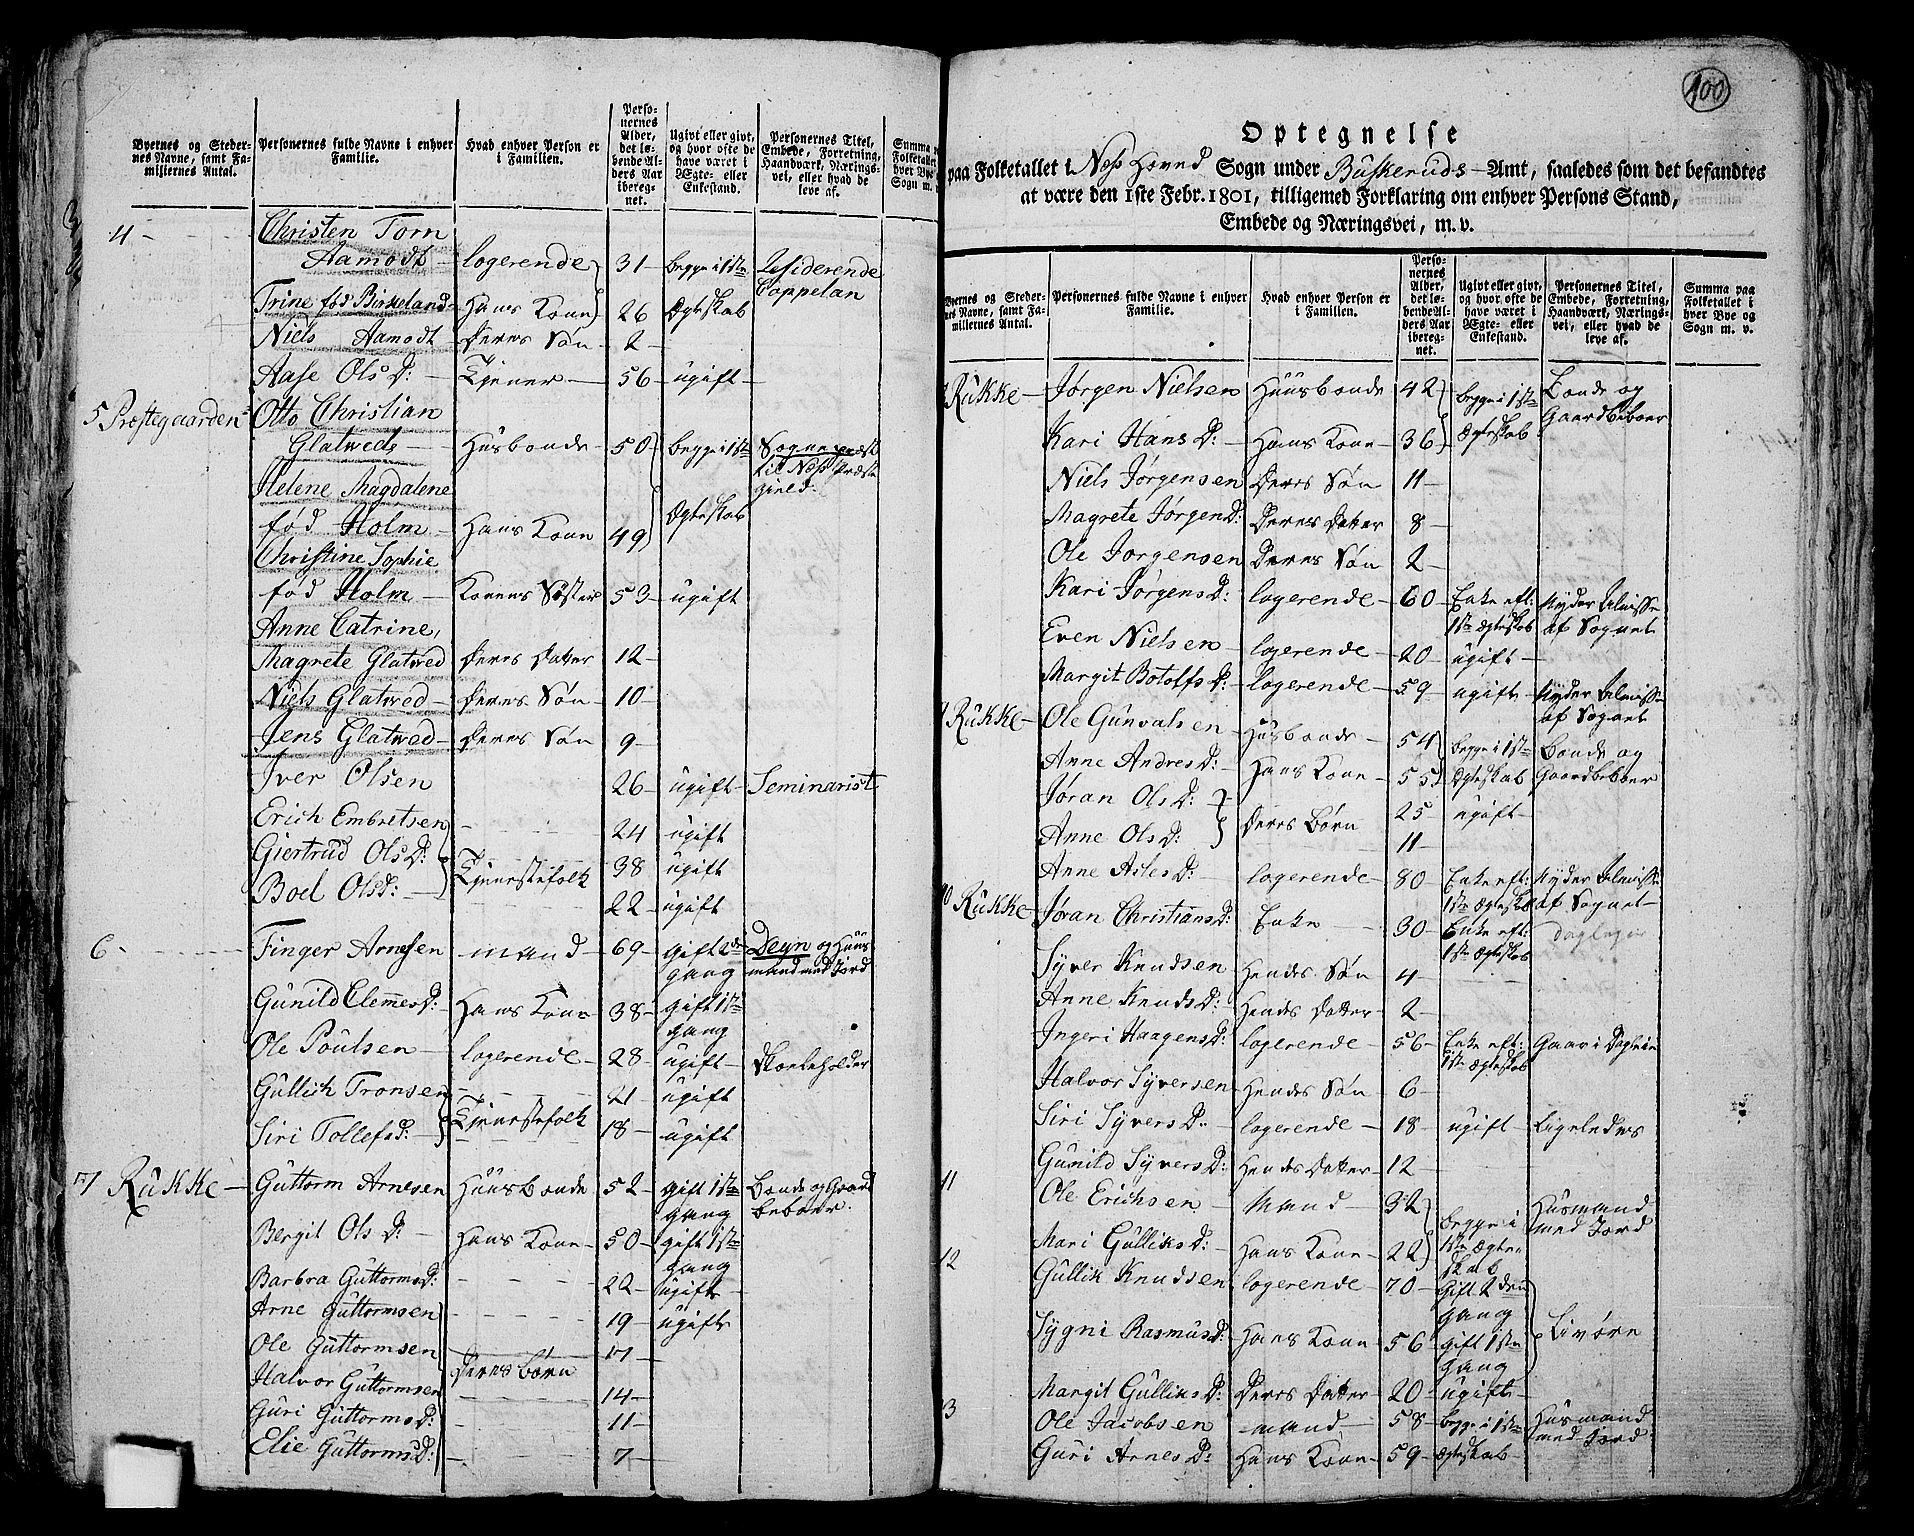 Byernes og Stedernes Navne, samt Familiernes Antal. | Personernes fulde Navne i enhver Familie. | Hvad enhver Person er i Familien. | Personernes Alder, det løbende Alders Aar iberegnet. | Ugivt eller givt, og hvor ofte de have været i Ægte- eller Enkestand. | Personernes Titel, Embede, Forretning, Haandværk, Næringsvei, eller hvad de leve af. | Summa Folketallet hver Bye Sogn m.
4 - Christen Torn
Aamodt - logerende 31 - begge i 1ste Residerende
Cappelan
Trine fød Birkeland - Hans Kone 26 Ægteskab
Niels Aamodt - Deres Søn - 2 -
Aase OlsD: - Tjener - 56 - ugift -
5 Præstegaarden Otto Christian
Glatweds - Husbonde - 50 begge i 1ste Sognepræst
til Næss Præste
Helene Magdalene gield:
fød Holm - Hans Kone - 49 Ægteskab
Christine Sophie
fød Holm - Konens Søster 53 - ugift
Anne Catrine,
Magrete Glatved Deres Datter 12 -
Niels Glatved - Deres Søn - 10 -
Jens Glatved - Deres Søn 9 -
Iver Olsen 26 ugift - Seminarist
Erich Embretsen 24 ugift
Giertrud OlsD: Tjenestefolk 38 ugift
Boel OlsD: - 22 - ugift
6 - Finger Arnesen mand 69 - gift 2den Degn og Huus
gang mand med Jord
Gunild ClemesD: Hans Kone 38 - gift 1ste
gang
Ole Poulsen - logerende - 28 - ugift - Skoeleholder
Gullich Tronsen 21 ugift
Siri TollefsD: - Tjenestefolk 18 - ugift
7 Rukke - Guttorm Arnesen Huusbonde 52 - gift 1ste Bonde og Gaard
gang beboer.
Bergit OlsD: - Hans Kone 50 - gift 1ste
gang
Barbra GuttormsD: 22 - ugift -
Arne Guttormsen 19 - ugift
Ole Guttormsen 17 -
Halvor Guttormsen Deres børn 14 -
Guri GuttormsD: 11 -
Elie GuttormsD: 7 -
100
Optegnelse
paa Folketallet i Næss Hovud Sogn under Buskeruds-Amt, saaledes som det befandtes
at være den 1ste Febr. 1801, tilligemed Forklaring om enhver Persons Stand,
Embede og Næringsvei, m. v.
Byernes og Stedernes Navne, samt Familiernes Antal. | Personernes fulde Navne i enhver Familie. | Hvad enhver Person er i Familien. | Personernes Alder, det løbende Alders Aar iberegnet. | Ugivt eller givt, og hvor ofte de have været i Ægte- eller Enkestand. | Personernes Titel, Embede, Forretning, Haandværk, Næringsvei, eller hvad de leve af. | Summa paa Folketallet i hver Bye og Sogn m. v.
Rukke - Jørgen Nielsen Huusbonde 42 begge i 1ste Bonde og
Gaardbeboer
Kari HansD: - Hans Kone - 36 Ægteskab
Niels Jørgensen Deres Søn 11 -
Magrete JørgenD: Deres Datter 8 -
Ole Jørgensen Deres Søn 2 -
Kari JørgensD: logerende - 60 - Enke eft: Nyder Almisse
1ste Ægteskab af Sognet
Even Nielsen - logerende - 20 - ugift -
Margit BotolfsD: - logerende - 59 - ugift - Nyder Almisse
af Sognet
Rukke - Ole Gunvalsen Husbonde - 54 begge i 1ste Bonde og
Anne AndresD: - Hans Kone - 55 Ægteskab Gaardbeboer
Jøran OlsD: 25 - ugift -
Anne OlsD: Deres Børn 11 -
Anne AslesD: logerende - 80 Enke eft: Nyder Almisse
1ste Ægteskab af Sognet -
10 Rukke - Jøran ChristiansD: Enke - 30 - Enke eft:
1ste Ægteskab
Syver Knudsen Hendes Søn 4
Anne KnudsD: Hendes Datter - 2 -
Ingeri HaagensD: logerende - 56 - Enke eft: Gaar i Dagleie
1ste Ægteskab
Halvor Syversen Hendes Søn 6 -
Siri SyversD: logerende - 18 - ugift - Ligeledes
Gunild SyversD: Hendes Datter - 12 -
11 Ole Erichsen Mand - 32 begge i Husmand
1ste Ægte- med Jord
Mari GulliksD: Hans Kone - 22 skab
12 Gullik Knudsen logerende - 70 - Gift 2den
gang
Sygni RasmusD: Hans Kone 56 gift 1ste Livøre
gang
Margit GulliksD: Deres Datter - 20 - ugift -
3 Ole Jacobsen mand - 58 - begge i 1ste Husmand
med Jord
Guri ArnesD: Hans Kone - 59 - Ægteskab